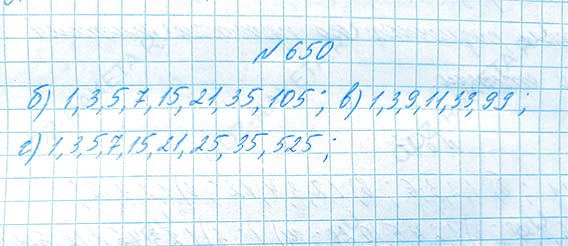 №650
б) 1, 3, 5, 7, 15, 21, 35, 105; в) 1, 3 9, 11, 33, 99;
г) 1, 3, 5, 7, 15, 21, 25, 35, 525;